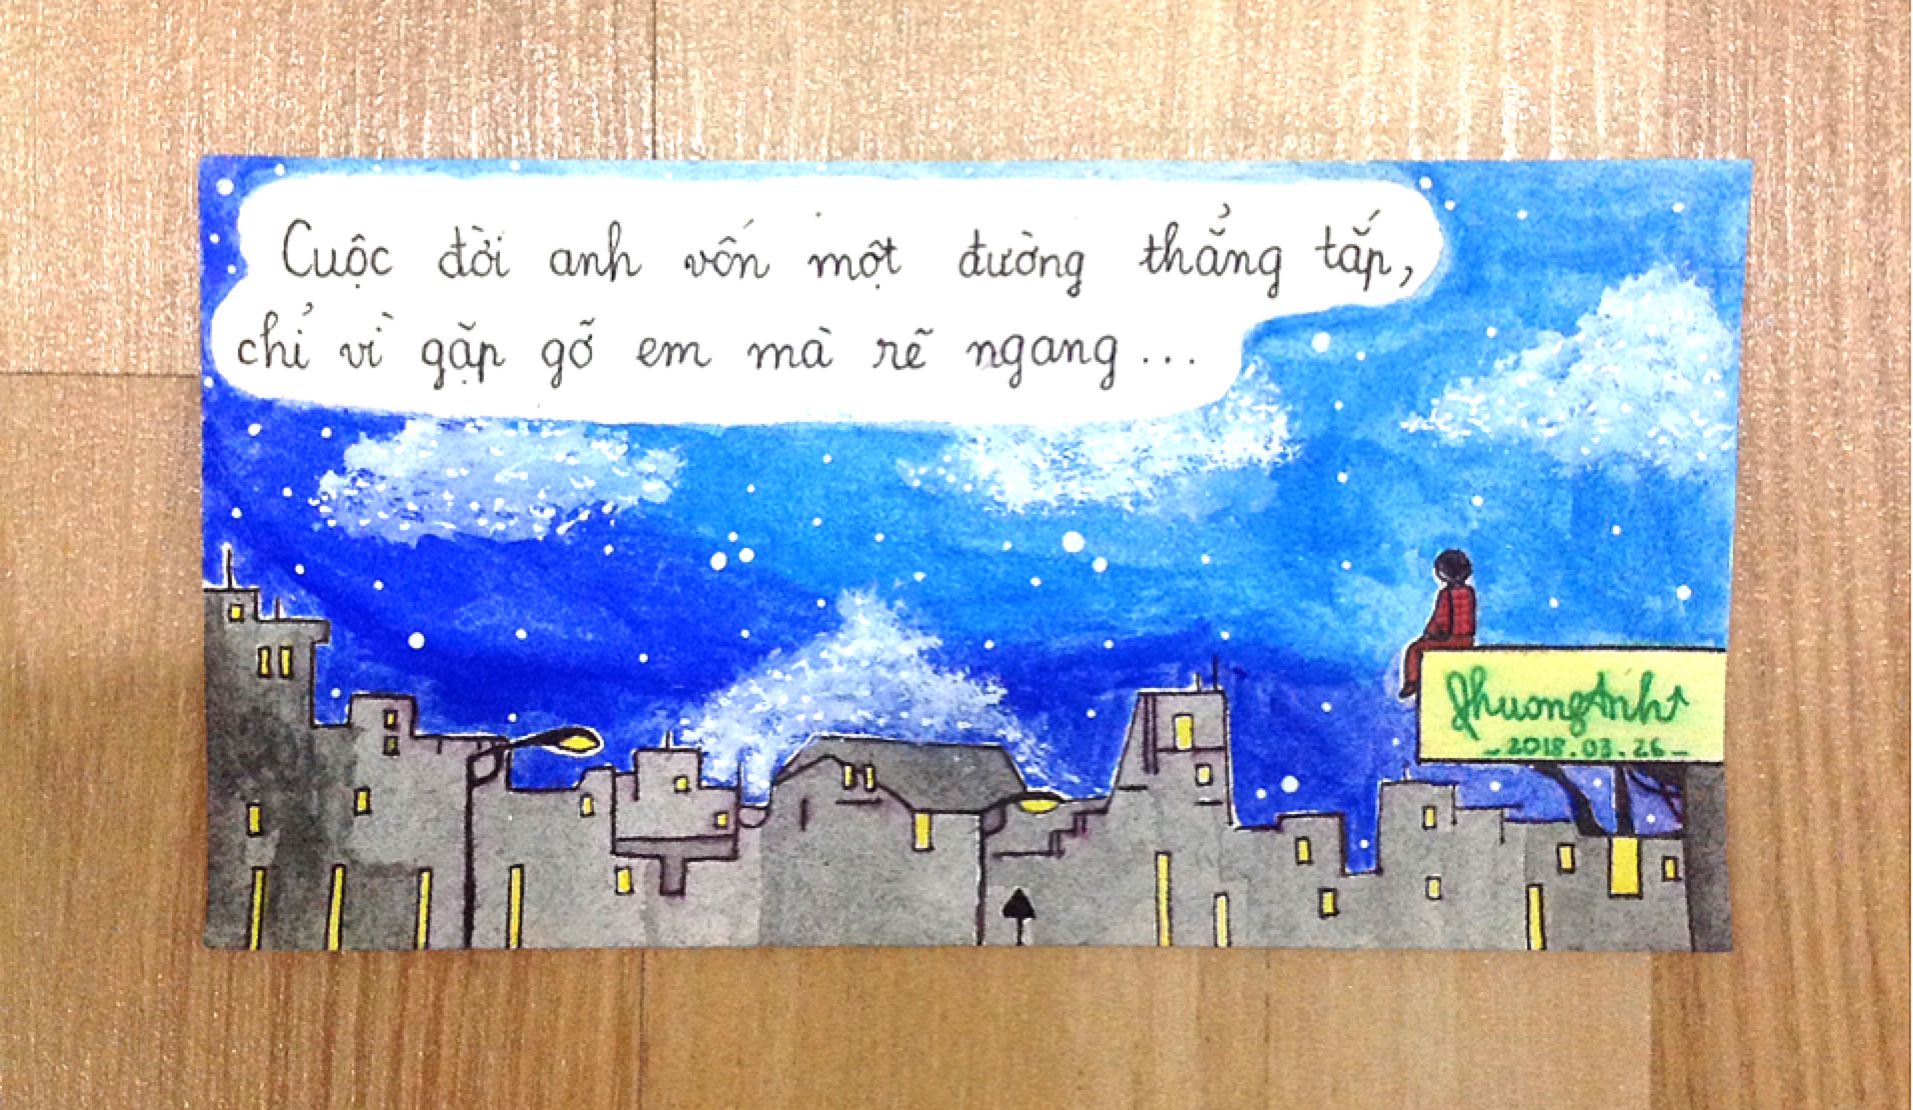 Cuộc đời anh vốn một đường thẳng tắp,
chỉ vì gặp gỡ em mà rẽ ngang...
PhuongAnh
- 2018.03.26 -